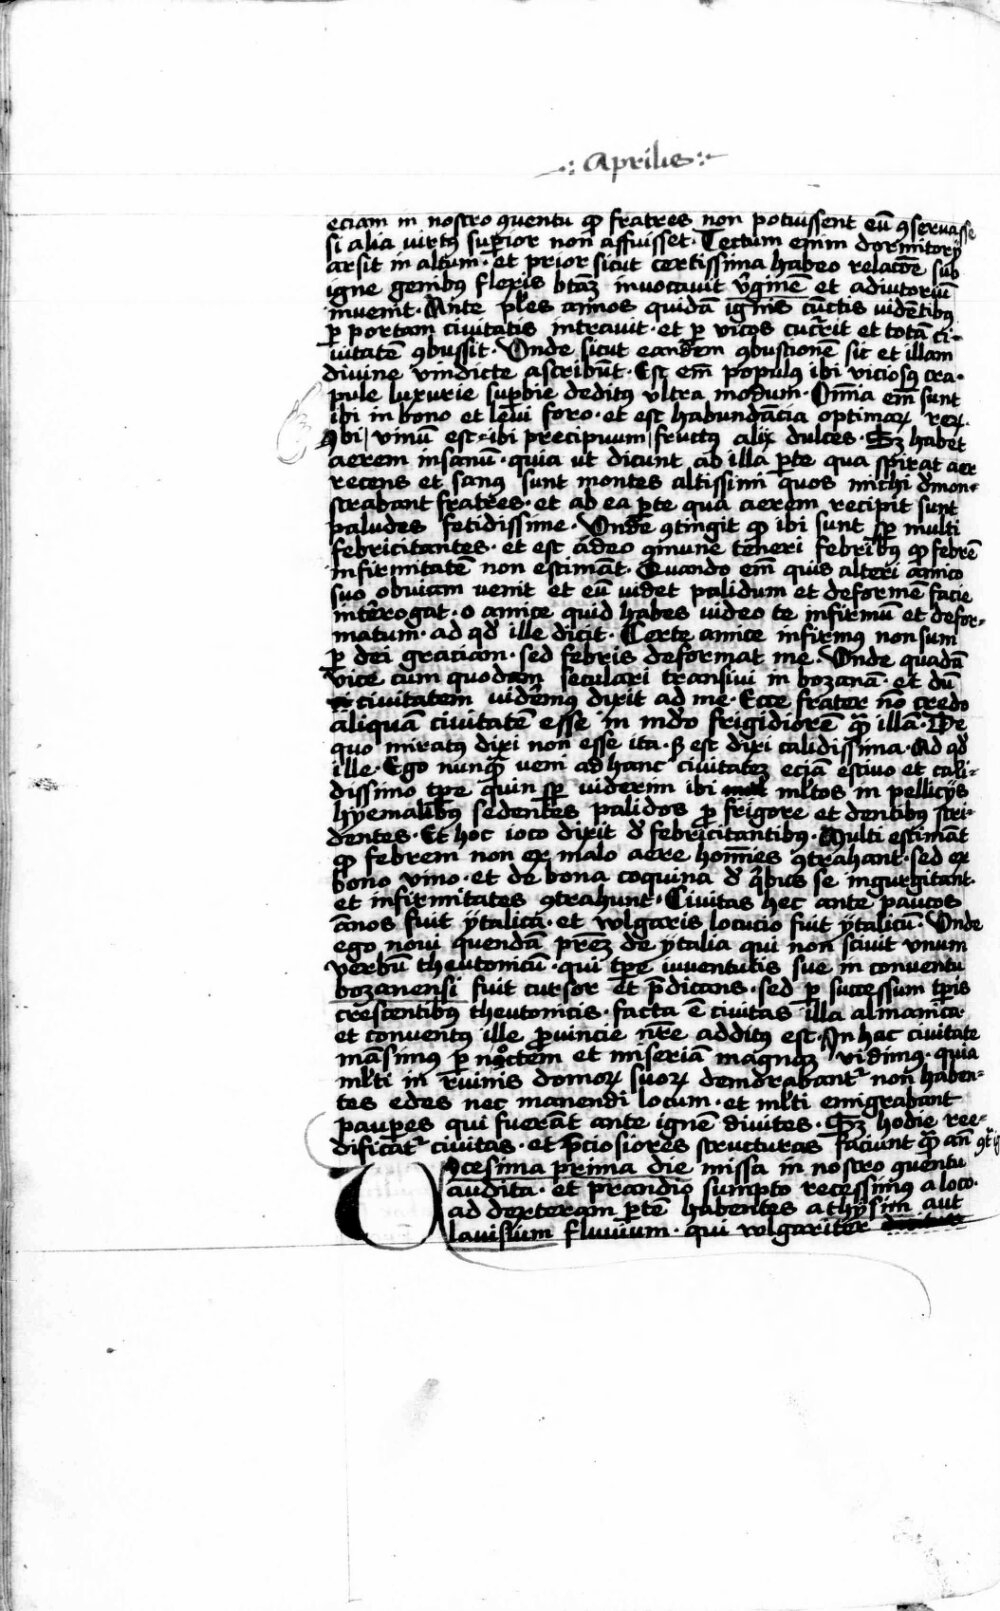 ·:· Aprilis ·:·
eciam in nostro ꝯuentu qꝫ fratres non potuissent eū ꝯseruasse
si alia virtꝰ suꝑior non affuisset · Tectum enim dormitorij
arsit in altum · et prior sicut certissima habeo relacōe sub
igne genibꝰ flexis btāꝫ inuocauit v̄ginem et adiutoriū
inuenit · Ante pl̄es annos quidā ignis cūctis vidētibꝰ
ꝑ portam ciuitatis intrauit · et ꝑ vicos cucr̄rit et totā ci-
uitatē ꝯbussit · Vnde sicut eandem ꝯbustionē sic et illam
diuine vindicte ascribūt · Est em̄ populꝰ ibi viciosꝰ cra-
pule luxurie suꝑbie deditꝰ vltra modum · Om̄ia em̄ sunt
ibi in bono et leui foro · et est habundācia optimaꝝ reꝝ ·
vbi vinū est · ibi precipuum fructꝰ alij dulces · Sꝫ habet
aerem insanū · quia ut dicunt ab illa ꝑte qua spirat aer
recens et sanꝰ sunt montes altissimi quos michi d̄mon-
strabant fratres · et ab ea ꝑte qua aerem recipit sunt
paludes fetidissime · Vnde ꝯtingit qꝫ ibi sunt sꝑ multi
febricitantes · et est adeo ꝯmune teneri febribꝰ qꝫ febrē
infirmitatē non estimāt · Quando em̄ quis alteri amico
suo obuiam venit et eū videt palidum et deformē facie
interrogat · o amice quid habes video te infirmū et defor-
matum · ad qd̄ ille dicit · Certe amice infirmꝰ non sum
ꝑ dei graciam · sed febris deformat me · Vnde quadā
vice cum quodam seculari transiui in bozanā · et dū
ciuitatem videremꝰ dixit ad me · Ecce frater nō credo
aliquā ciuitatē esse in mūdo frigidiorē qꝫ illā · De
quo miratꝰ dixi non esse ita · sꝫ est dixi calidissima · Ad qd̄
ille · Ego nunqꝫ veni ad hanc ciuitateꝫ eciā estiuo et cali-
dissimo tꝑe quin sꝑ viderim ibi ml̄tos in pellicijs
hyemalibꝰ sedentes palidos p̄ frigore et dentibꝰ stri-
dentes · Et hoc ioco dixit d̄ febricitantibꝰ · Multi estimāt
qꝫ febrem non ex malo aere hom̄ies ꝯtrahant · sed ex
bono vino · et de bona coquina d̄ qͥbus se ingurgitant ·
et infirmitates ꝯtrahunt · Ciuitas hec ante paucos
ānos fuit ytalica · et volgaris locucio fuit ytalicū · Vnde
ego noui quendā pr̄eꝫ de ytalia qui non sciuit vnum
verbū theutonicū · qui tꝑe iuuentutis sue in conuentu
bozanensi fuit cursor et p̄dicans · sed ꝑ successum tꝑis
crescentibꝰ theutonicis · facta ē ciuitas illa almanica ·
et conuentꝰ ille ꝓuincie nr̄e additꝰ est · In hac ciuitate
mansimꝰ ꝑ noctem et miseriā magnaꝫ vidimꝰ · quia
ml̄ti in ruinis domoꝝ suoꝝ demorabantͬ non haben-
tes edes nec manendi locum · et ml̄ti emigrabant
pauꝑes qui fuerāt ante ignē diuites · Sꝫ hodie ree-
dificatͬ ciuitas · et p̄ciosiores structuras faciunt qꝫ an̄
Vicesima prima die missa in nostro ꝯuentu
audita · et prandio sumpto recessimꝰ a loco ·
ad dexteram ꝑtē habentes athysim aut
lauisium fluuium · qui volgariter dicitur